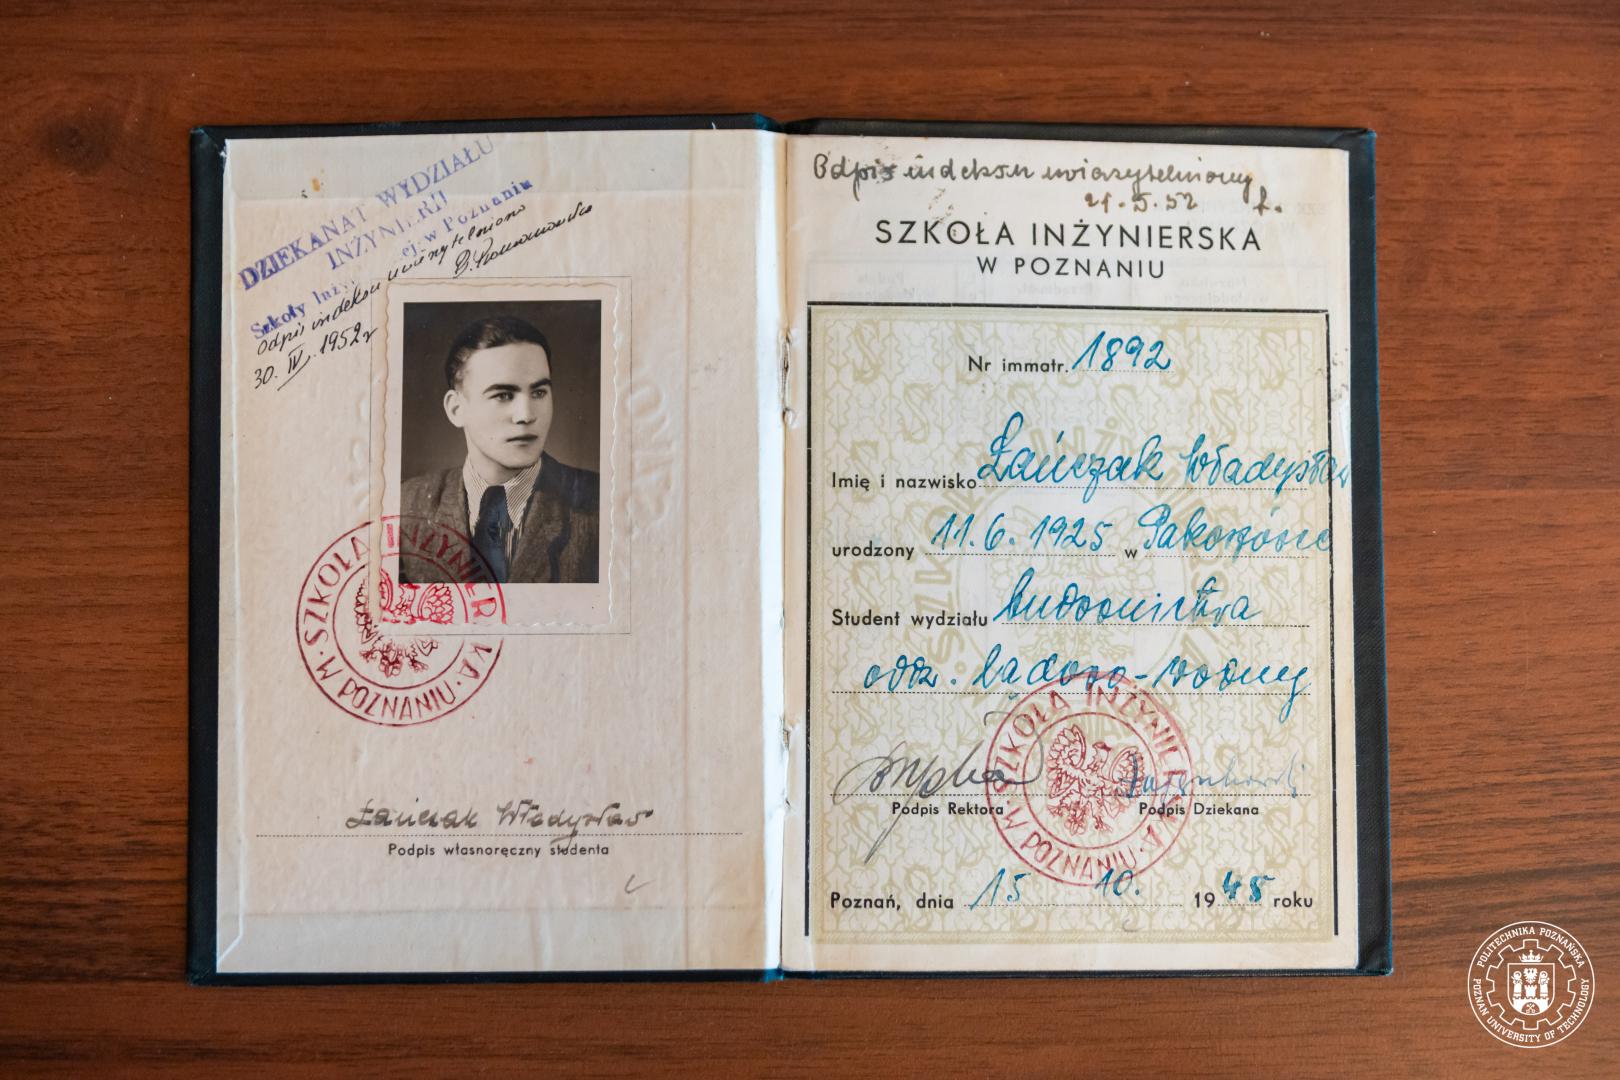 DZIEKANAT WYDZIAŁU
INŻYNIERII
Szkoły Inż ej. w Poznaniu
Odpis indeksu uwierzytelniono
30. IV. 1952 r
SZKOŁA INŻYNIERSKA
W POZNANIU
Łańczak Władysław
Podpis własnoręczny studenta
Odpis indeksu uwierzytelniony
21.5.52
SZKOŁA INŻYNIERSKA
W POZNANIU
Nr immatr. 1892
Imię i nazwisko Łańczak Władysław
urodzony 11.6.1925 w
Student wydziału budownictwa
odz. lądowo-wodny
Podpis Rektora Podpis Dziekana
SZKOŁA INŻYNIERSKA
W POZNANIU
Poznań, dnia 15 10. 1948 roku
POLITECHNIKA POZNAŃSKA
POZNAN UNIVERSITY OF TECHNOLOGY